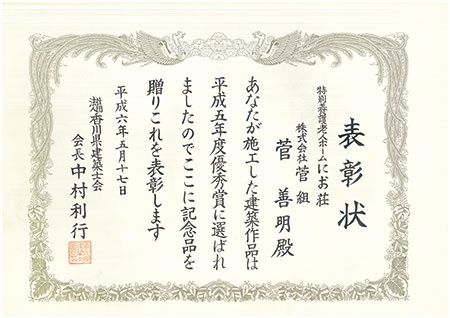 表彰状
特別養護老人ホームにお荘
株式会社菅組
菅善明殿
あなたが施工した建築作品は
平成五年度優秀賞に選ばれ
ましたのでここに記念品を
贈りこれを表彰します
平成六年五月十七日
香川県建築士会
会長中村利行